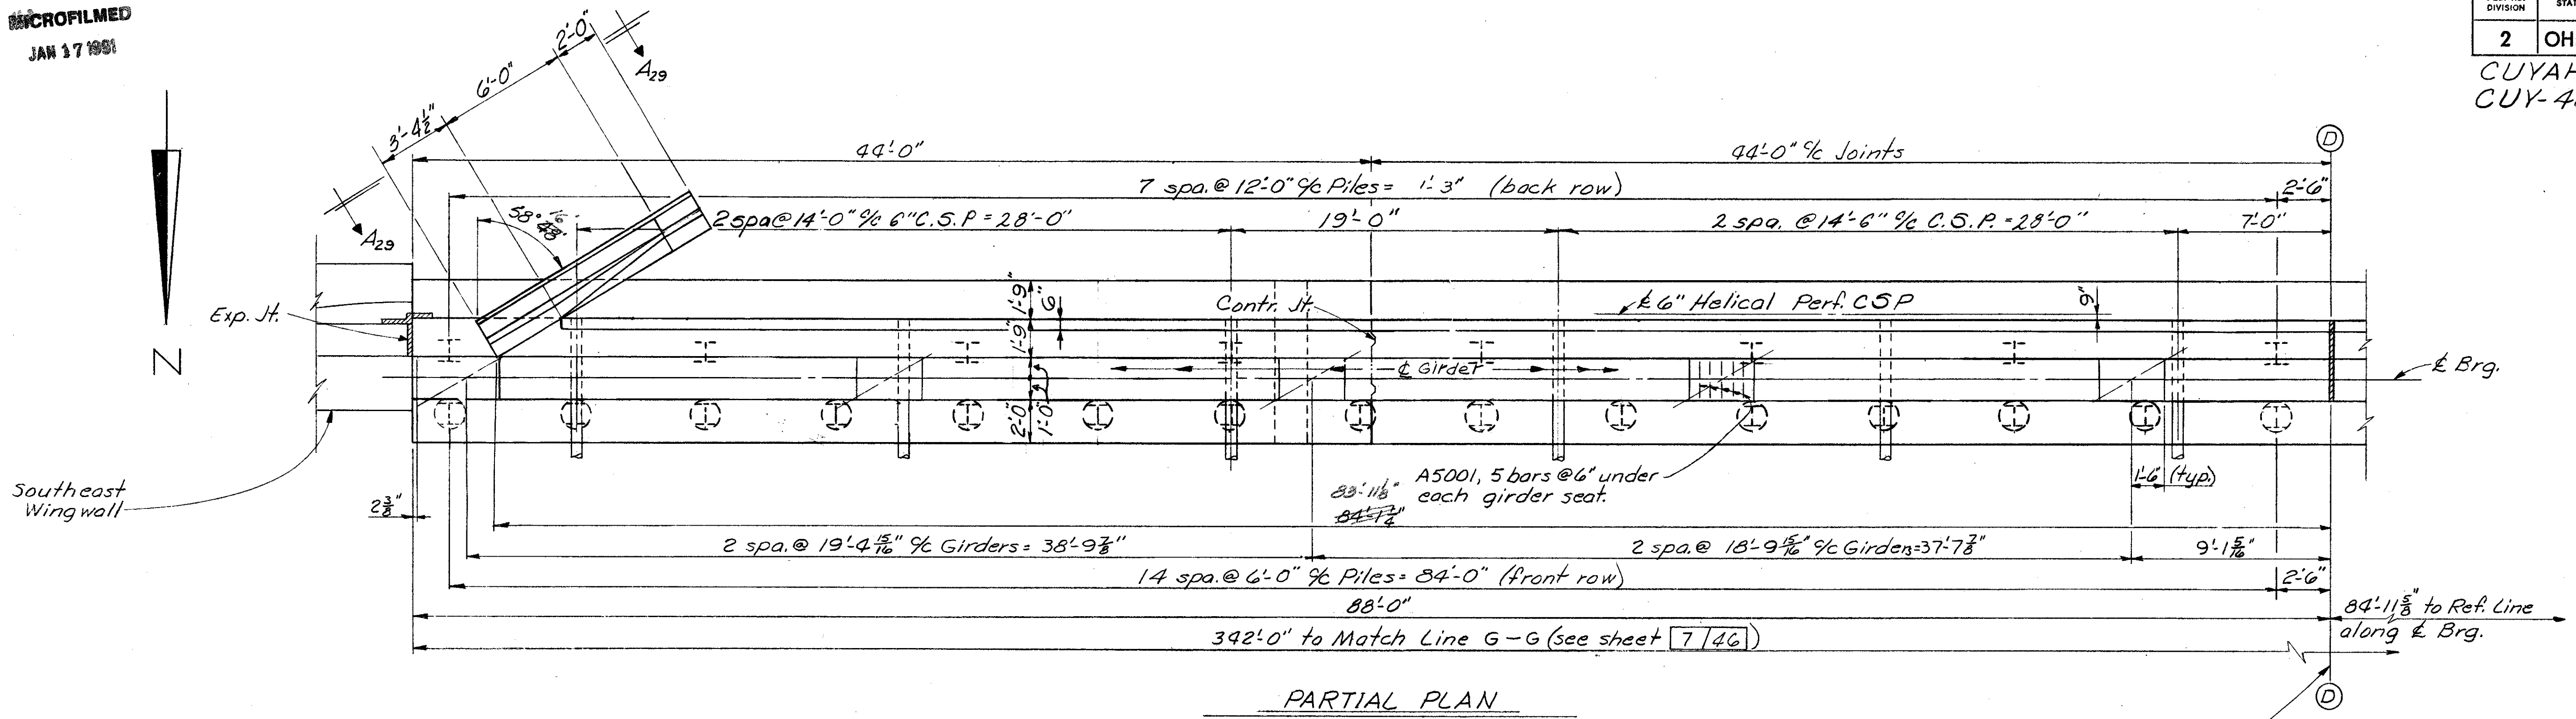 MICROFILMED
JAN 17 1991
DIVISION
2 OH
CUYAH
CUY-4
2'-0"
6'-0"
3'-4½"
A29
A29
N
D
44'-0"
44'-0" c/c Joints
7 spa. @ 12'-0" c/c Piles = 1'-3" (back row)
2'-6"
58°
48'
2 spa @ 14'-0" c/c 6" C.S.P = 28'-0"
19'-0"
2 spa. @ 14'-6" c/c C.S.P. = 28'-0"
7'-0"
Exp. Jt.
1'-9"
6"
Contr. Jt.
℄ 6" Helical Perf. CSP
9"
1'-9"
℄ Girder
℄ Brg.
2'-0"
1'-0"
Southeast
Wingwall
2⅜"
83'-11⅛"
84'-1¼"
A5001, 5 bars @ 6" under
each girder seat.
1'-6" (typ.)
2 spa. @ 19'-4 15/16" c/c Girders = 38'-9⅞"
2 spa. @ 18'-9 15/16" c/c Girders = 37'-7⅞"
9'-1 5/16"
14 spa. @ 6'-0" c/c Piles = 84'-0" (front row)
2'-6"
88'-0"
84'-11⅝" to Ref. Line
along ℄ Brg.
342'-0" to Match Line G-G (see sheet 7/46)
PARTIAL PLAN
D